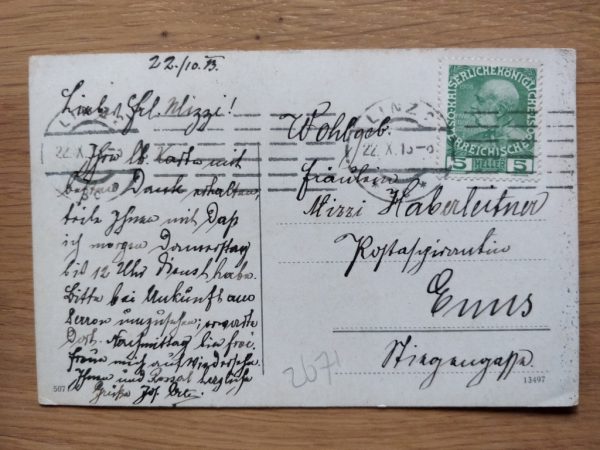 22./10.13.
Liebe Frl. Mizzi!
Ihre lb. Karte mit
bestem Dank erhalten,
teile Ihnen mit Daß
ich morgen Donnerstag
bis 12 Uhr Dienst habe.
Bitte bei Ankunft am
umzusehen, erwarte
Dort. Nachmittag bin frei.
Freue mich auf Wiedersehn.
Ihnen und herzliche
Grüße Jos.
597
LINZ
22.X.13
KAISERLICHE KÖNIGLICHE
ÖSTERREICHISCHE POST
5 HELLER 5
Wohlgeb.
Fräulein
Mizzi Haberleitner
Postaspirantin
Enns
Stiegengasse
2671
13497